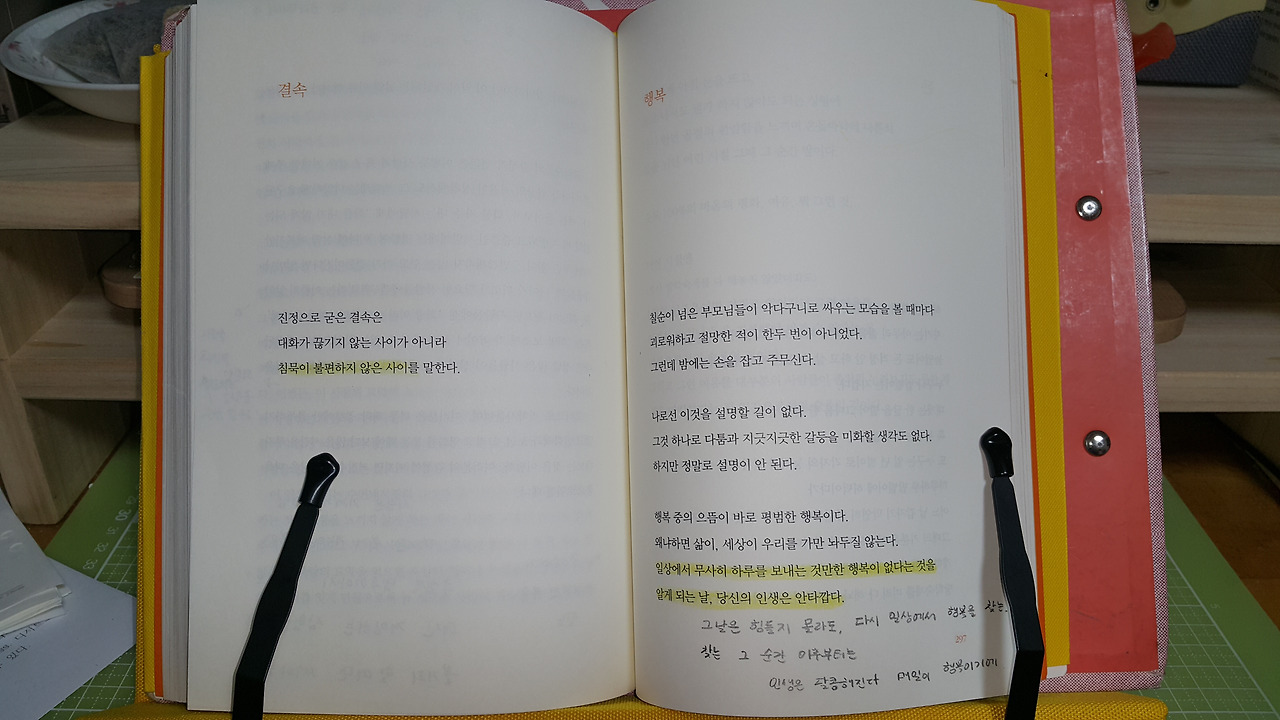 결속
진정으로 굳은 결속은
대화가 끊기지 않는 사이가 아니라
침묵이 불편하지 않은 사이를 말한다.
행복
칠순이 넘은 부모님들이 악다구니로 싸우는 모습을 볼 때마다
괴로워하고 절망한 적이 한두 번이 아니었다.
그런데 밤에는 손을 잡고 주무신다.
나로선 이것을 설명할 길이 없다.
그것 하나로 다툼과 지긋지긋한 갈등을 미화할 생각도 없다.
하지만 정말로 설명이 안 된다.
행복 중의 으뜸이 바로 평범한 행복이다.
왜냐하면 삶이, 세상이 우리를 가만 놔두질 않는다.
일상에서 무사히 하루를 보내는 것만한 행복이 없다는 것을
알게 되는 날, 당신의 인생은 안타깝다.
그날은 힘들지 몰라도, 다시 일상에서 행복을 찾는.
297
찾는 그 순간 이후부터는
인생은 달콤해진다 매일이 행복이기에